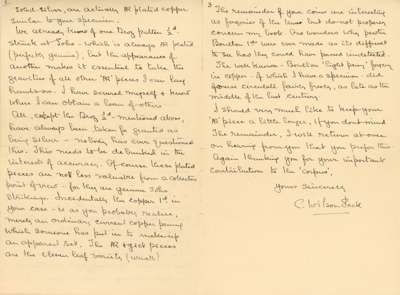 Solid silver, are actually AR plated copper
similar to your specimen.
We already know of one Troy pattern 3d.
struck at Soho - which is always AR plated
(perfectly genuine), but the appearance of
another makes it essential to take the
gravities of all other "AR" pieces I can lay
hands on. I have several myself & know
where I can obtain a loan of others.
All, except the 3d. mentioned above,
have always been taken for granted as
being silver - nobody has ever questioned
this. This needs to be debunked in the
interests of accuracy. Of course these plated
pieces are not less valuable from a collectors
point of view - for they are genuine Soho
Strikings. Incidentally the copper 1d. in
your case - is as you probably realise,
merely an ordinary current copper penny
which someone has put in to make up
an apparent set. The AR & gilt pieces
are the clover leaf variety (small)
3
The remainder of your coins are interesting
as forgeries of the times but do not properly
concern my book. One wonders why poor
Boulton 1ds were ever made so as difficult
to see how they could have passed undetected.
The well known - Boulton "light penny" forgery
in copper - of which I have a specimen - did
of course circulate fairly freely, as late as the
middle of the last century.
I should very much like to keep your
AR piece a little longer, if you don't mind
The remainder, I will return at once
on hearing from you that you prefer this.
Again thanking you for your important
contribution to the 'corpus'.
Yours Sincerely
C Wilson Peck